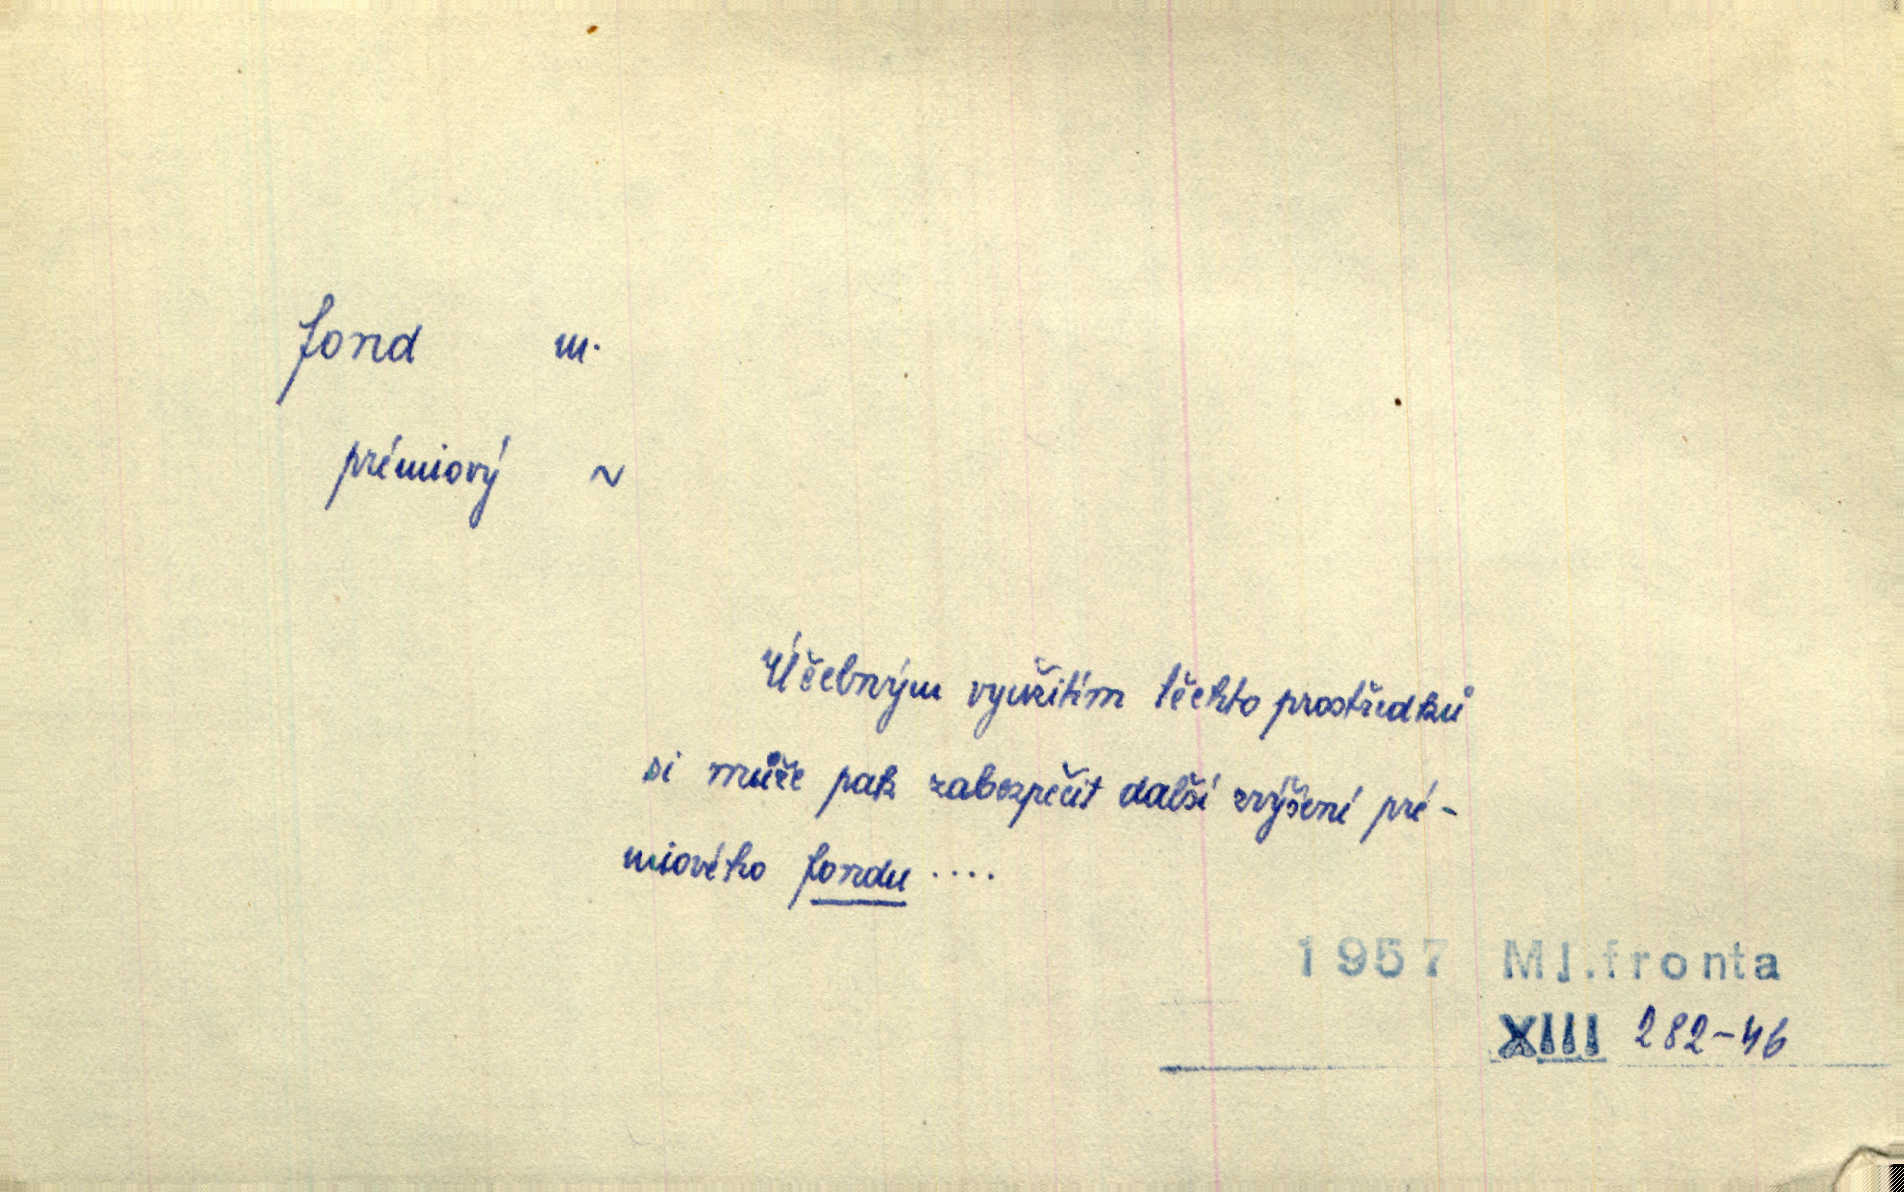 fond m.
prémiový ~
Účelným využitím těchto prostředků
si může pak zabezpečit další zvýšení pré-
miového fondu ....
1957 Ml.fronta
XIII 282-46